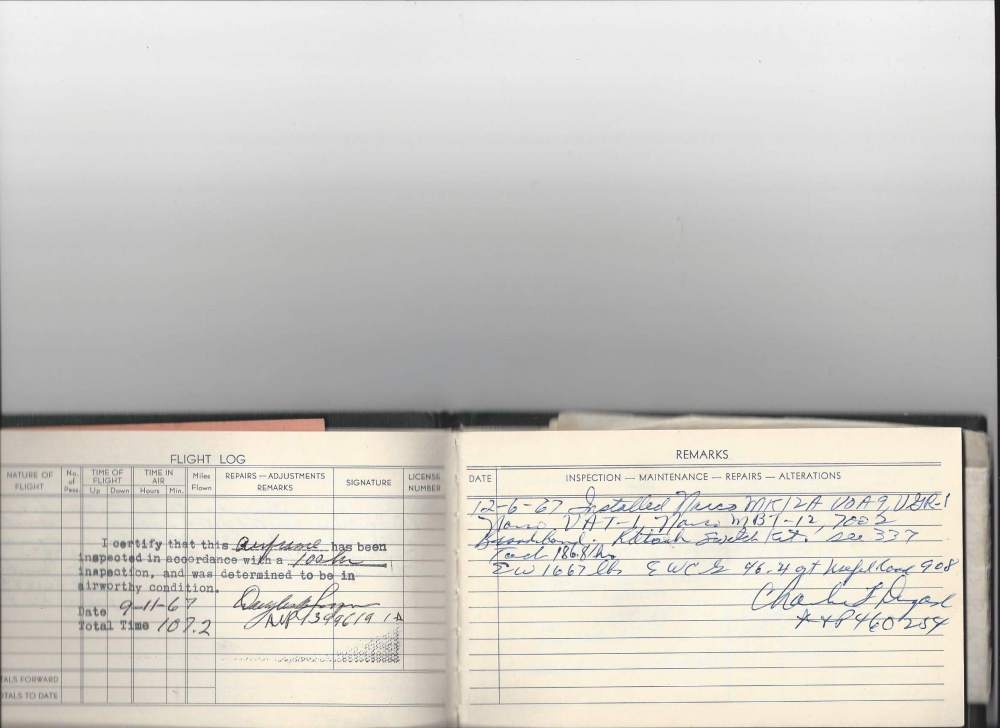 FLIGHT LOG
NATURE OF FLIGHT
No. of Pass.
TIME OF FLIGHT
Up Down
TIME IN AIR
Hours Min.
Miles Flown
REPAIRS — ADJUSTMENTS
REMARKS
SIGNATURE
LICENSE NUMBER
I certify that this airframe has been
inspected in accordance with a 100 hr
inspection, and was determined to be in
airworthy condition.
Date 9-11-67
Total Time 107.2
1399619 IA
TALS FORWARD
OTALS TO DATE
REMARKS
DATE
INSPECTION — MAINTENANCE — REPAIRS — ALTERATIONS
12-6-67 Installed Narco MK12A VOA9, UGR-1
Narco VAT-1, Narco MBT-12, 700 2
Broadband. Switch see 337
Tach 186.8 hrs
EW 1667 lbs EWCG 46.4 Useful Load 908
Charles L
460254